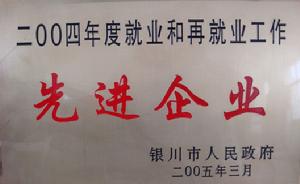 二00四年度就业和再就业工作
先进企业
银川市人民政府
二00五年三月